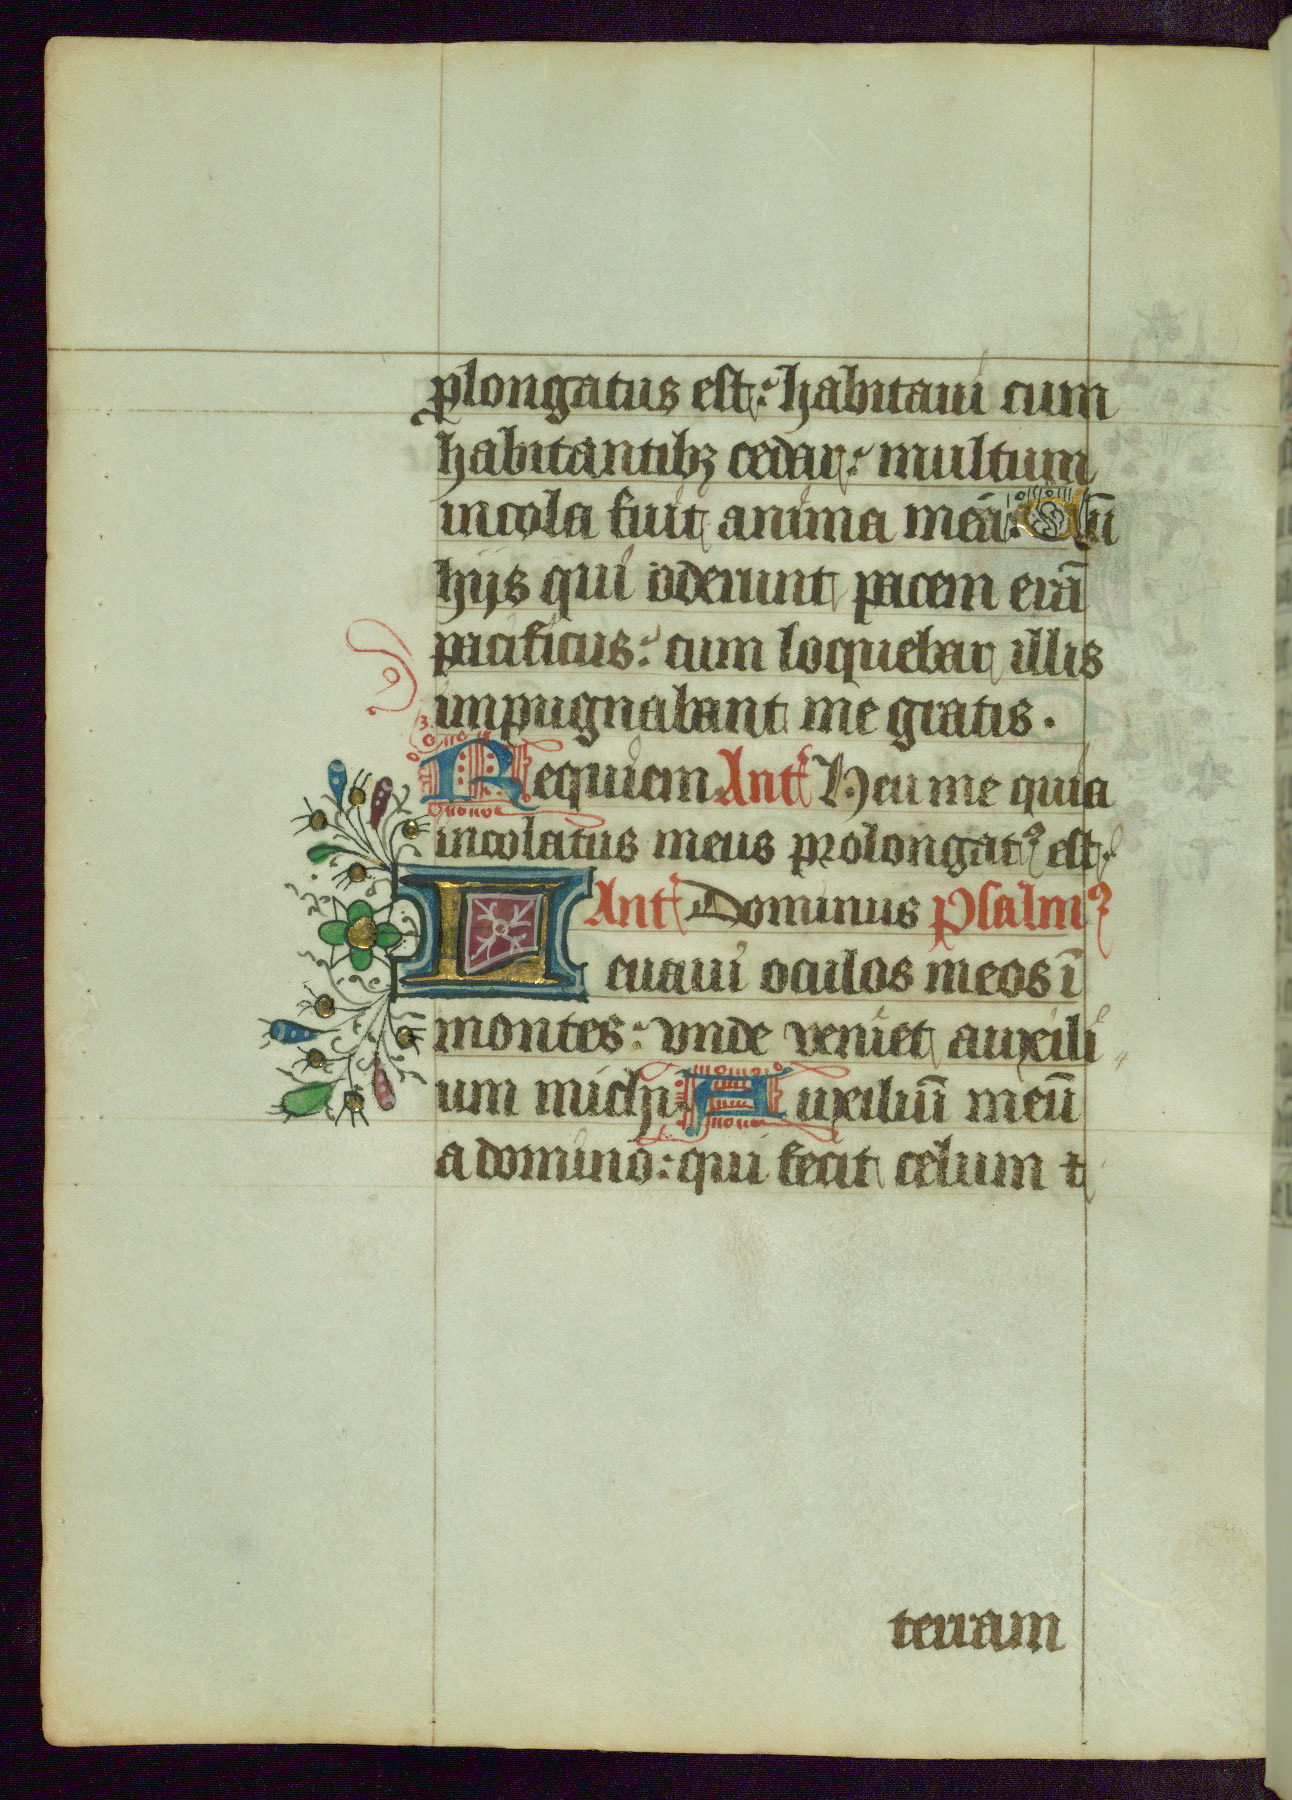 ꝓlongatus est: habitaui cum
habitantibꝫ cedar: multum
incola fuit anima mea: Cū
hijs qui oderunt pacem erā
pacificus: cum loquebar illis
impugnabant me gratis.
Requiem Ant Heu me quia
incolatus meus prolongatꝰ est.
Ant Dominus Psalmꝰ
Leuaui oculos meos ī
montes: vnde veniet auxili
um michi Auxiliū meū
a domino: qui fecit celum ⁊
terram